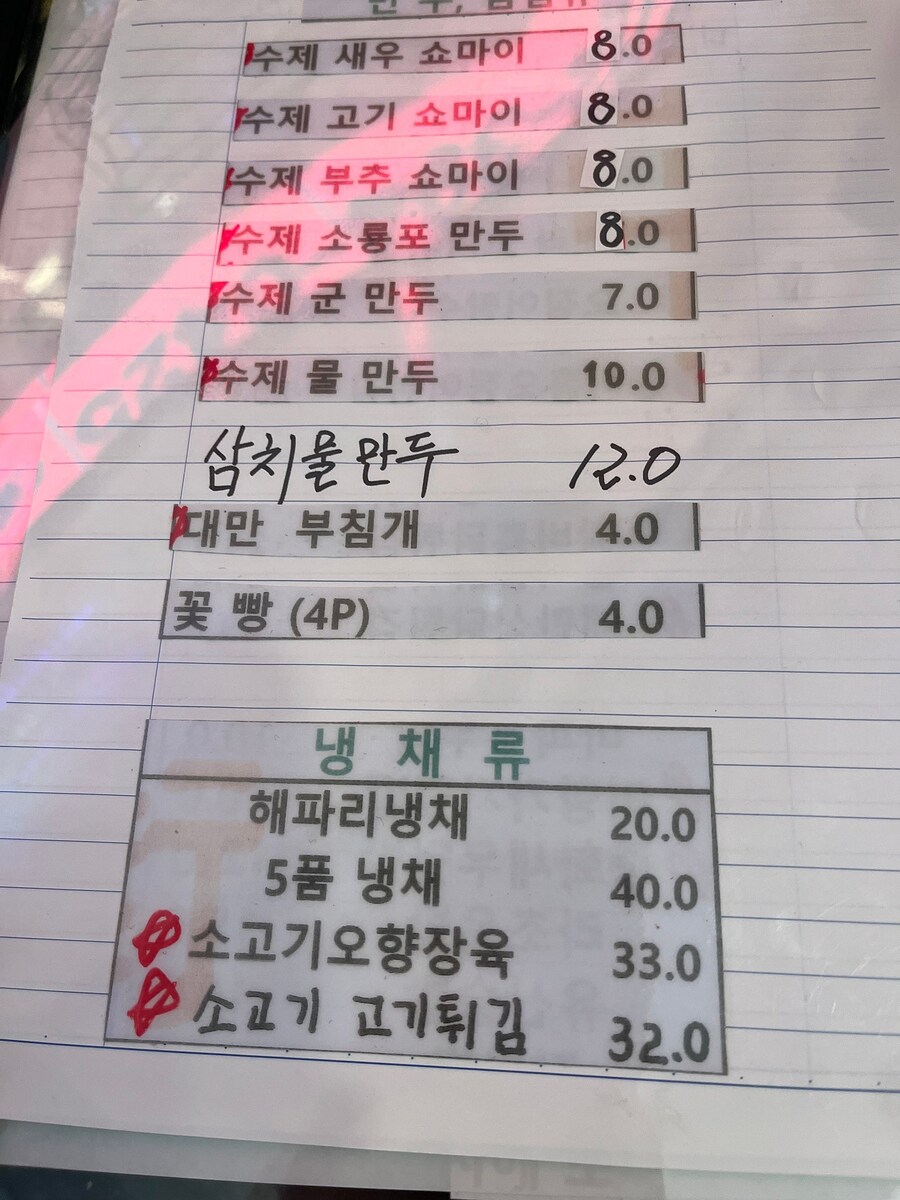 수제 새우 쇼마이 8.0
수제 고기 쇼마이 8.0
수제 부추 쇼마이 8.0
수제 소룡포 만두 8.0
수제 군 만두 7.0
수제 물 만두 10.0
삼치물만두 12.0
대만 부침개 4.0
꽃 빵 (4P) 4.0
냉 채 류
해파리냉채 20.0
5품 냉채 40.0
소고기오향장육 33.0
소고기 고기튀김 32.0